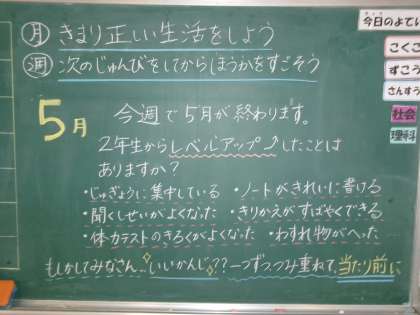 月 きまり正しい生活をしよう
週 次のじゅんびをしてからほうかをすごそう
5月 今週で5月が終わります。
2年生からレベルアップ⤴したことは
ありますか?
・じゅぎょうに集中している ・ノートがきれいに書ける
・聞くしせいがよくなった ・きりかえがすばやくできる
・体力テストのきろくがよくなった ・わすれ物がへった
もしかしてみなさん…いいかんじ??一つずつつみ重ねて、当たり前に
今日のよてい
こくご
ずこう
さんすう
社会
理科